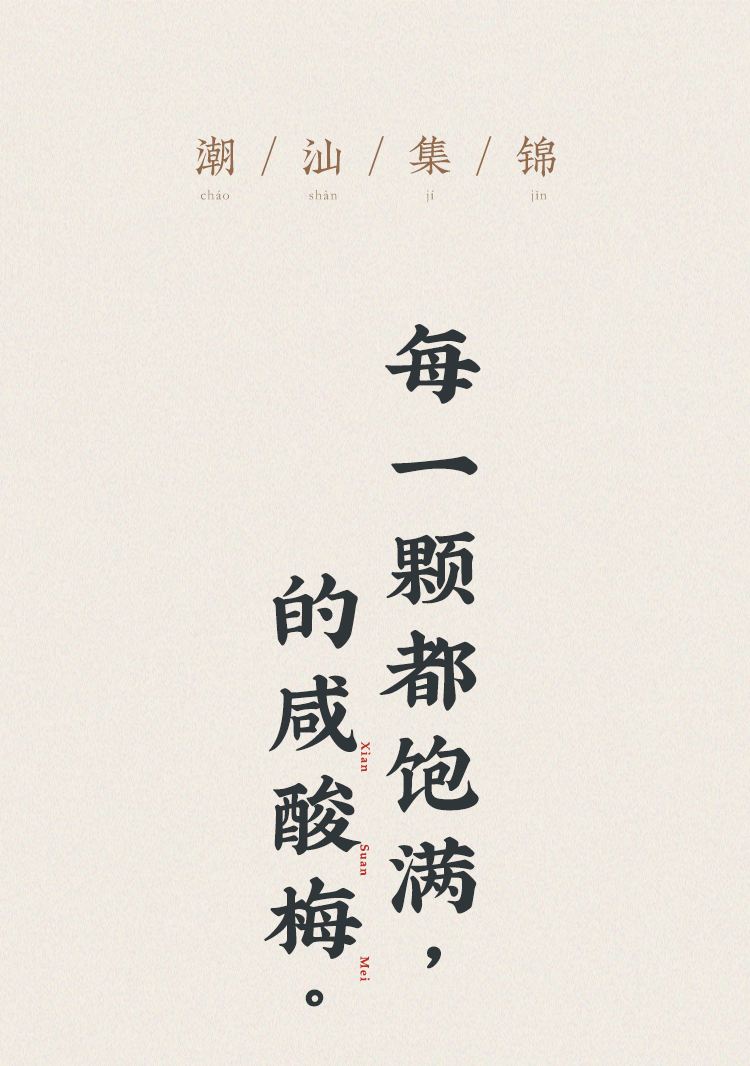 潮/汕/集/锦
cháo shàn jí jǐn
每一颗都饱满，
的咸酸梅。
Xian Suan Mei